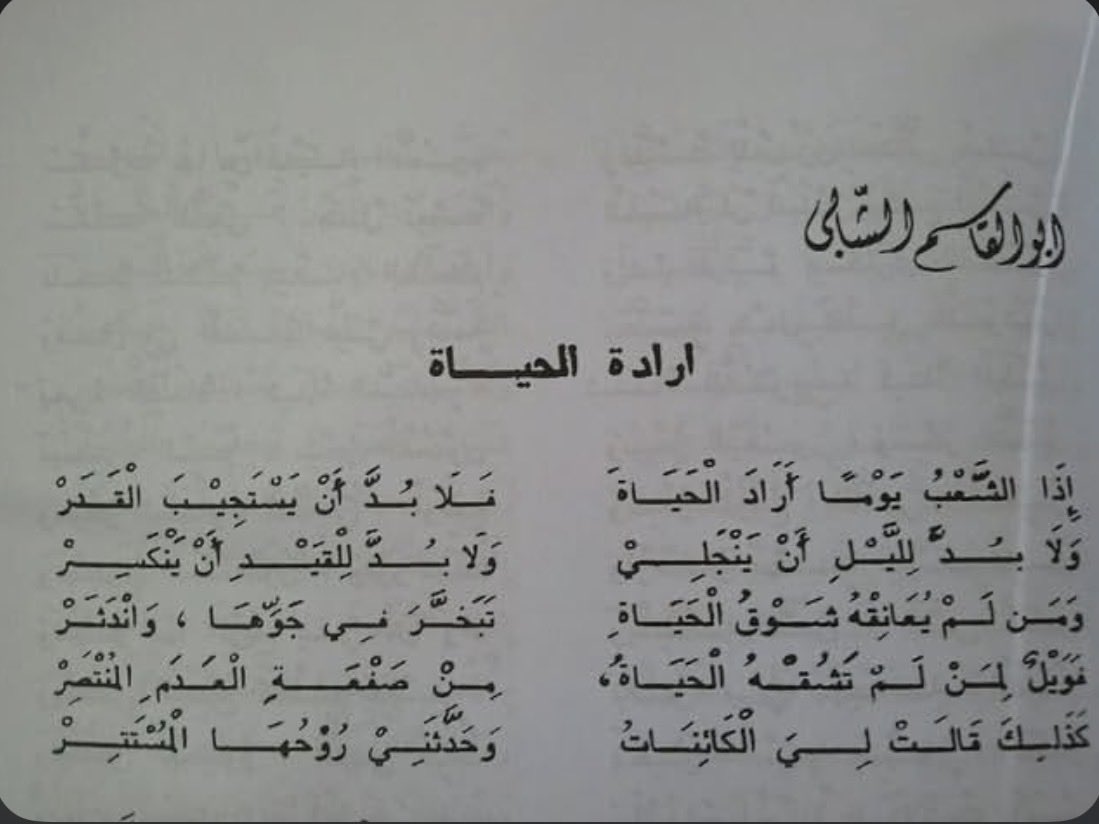 ابو القاسم الشّابي
ارادة الحيـــاة
إِذَا الشَّعْبُ يَوْمًا أَرَادَ الْحَيَـاةَ فَـلَا بُـدَّ أَنْ يَسْتَجِيْبَ الْقَـدَرْ
وَلَا بُـــدَّ لِلَّيْـلِ أَنْ يَنْجَلِـــيْ وَلَا بُـــدَّ لِلْقَيْـــدِ أَنْ يَنْكَسِـــرْ
وَمَـن لَـمْ يُعَانِقْهُ شَـوْقُ الْحَيَـاةِ تَبَخَّـرَ فـِي جَوِّهَـا ، وَانْدَثَـرْ
فَوَيْلٌ لِمَـنْ لَـمْ تَشُقْـهُ الْحَيَـاةُ، مِـنْ صَفْعَـــةِ الْعَـدَمِ الْمُنْتَصِرْ
كَذَلِـكَ قَالَـتْ لِـــيَ الْكَائِنَـاتُ وَحَدَّثَنِـيْ رُوْحُهَـــا الْمُسْتَتِـــرْ